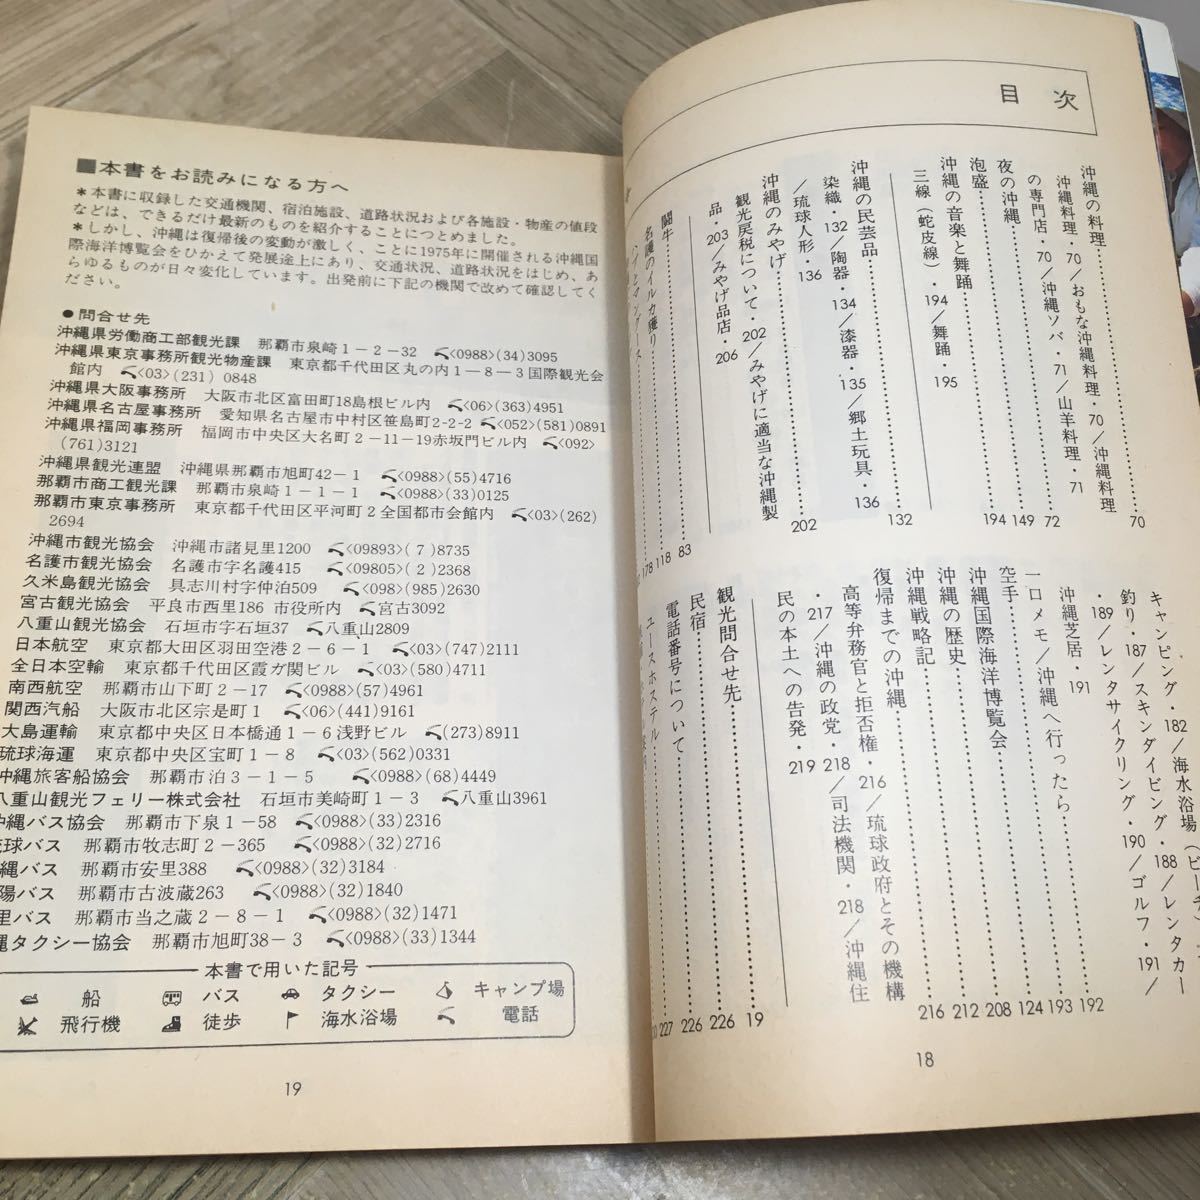 目次
沖縄の料理 70
沖縄料理・70/おもな沖縄料理・70/沖縄料理
の専門店・70/沖縄ソバ・71/山羊料理・71
夜の沖縄 72
泡盛 149
沖縄の音楽と舞踊 194
三線(蛇皮線)・194/舞踊・195
沖縄の民芸品 132
染織・132/陶器・134/漆器・135/郷土玩具・136
/琉球人形・136
沖縄のみやげ 202
観光戻税について・202/みやげに適当な沖縄製
品・203/みやげ品店・206
闘牛 83
名護のイルカ獲り 118
ハブとマングース 178
キャンピング・182/海水浴場(ビーチ)
釣り・187/スキンダイビング・188/レンタカー
・189/レンタサイクリング・190/ゴルフ・191/
沖縄芝居・191
一口メモ/沖縄へ行ったら 192
空手 193
沖縄国際海洋博覧会 124
沖縄の歴史 208
沖縄戦略記 212
復帰までの沖縄 216
高等弁務官と拒否権・216/琉球政府とその機構
・217/沖縄の政党・218/司法機関・218/沖縄住
民の本土への告発・219
観光問合せ先 19
民宿 226
電話番号について 226
ユースホステル 227
18
■本書をお読みになる方へ
*本書に収録した交通機関、宿泊施設、道路状況および各施設・物産の値段
などは、できるだけ最新のものを紹介することにつとめました。
*しかし、沖縄は復帰後の変動が激しく、ことに1975年に開催される沖縄国
際海洋博覧会をひかえて発展途上にあり、交通状況、道路状況をはじめ、あ
らゆるものが日々変化しています。出発前に下記の機関で改めて確認してく
ださい。
●問合せ先
沖縄県労働商工部観光課 那覇市泉崎1-2-32 <0988>(34)3095
沖縄県東京事務所観光物産課 東京都千代田区丸の内1-8-3国際観光会
館内 <03>(231)0848
沖縄県大阪事務所 大阪市北区富田町18島根ビル内 <06>(363)4951
沖縄県名古屋事務所 愛知県名古屋市中村区笹島町2-2-2 <052>(581)0891
沖縄県福岡事務所 福岡市中央区大名町2-11-19赤坂門ビル内 <092>
(761)3121
沖縄県観光連盟 沖縄県那覇市旭町42-1 <0988>(55)4716
那覇市商工観光課 那覇市泉崎1-1-1 <0988>(33)0125
那覇市東京事務所 東京都千代田区平河町2全国都市会館内 <03>(262)
2694
沖縄市観光協会 沖縄市諸見里1200 <09893>(7)8735
名護市観光協会 名護市字名護415 <09805>(2)2368
久米島観光協会 具志川村字仲泊509 <098>(985)2630
宮古観光協会 平良市西里186 市役所内 宮古3092
八重山観光協会 石垣市字石垣37 八重山2809
日本航空 東京都大田区羽田空港2-6-1 <03>(747)2111
全日本空輸 東京都千代田区霞ガ関ビル <03>(580)4711
南西航空 那覇市山下町2-17 <0988>(57)4961
関西汽船 大阪市北区宗是町1 <06>(441)9161
大島運輸 東京都中央区日本橋通1-6浅野ビル (273)8911
琉球海運 東京都中央区宝町1-8 <03>(562)0331
沖縄旅客船協会 那覇市泊3-1-5 <0988>(68)4449
八重山観光フェリー株式会社 石垣市美崎町1-3 八重山3961
沖縄バス協会 那覇市下泉1-58 <0988>(33)2316
琉球バス 那覇市牧志町2-365 <0988>(32)2716
縄バス 那覇市安里388 <0988>(32)3184
陽バス 那覇市古波蔵263 <0988>(32)1840
里バス 那覇市当之蔵2-8-1 <0988>(32)1471
縄タクシー協会 那覇市旭町38-3 <0988>(33)1344
本書で用いた記号
船 バス タクシー キャンプ場
飛行機 徒歩 海水浴場 電話
19